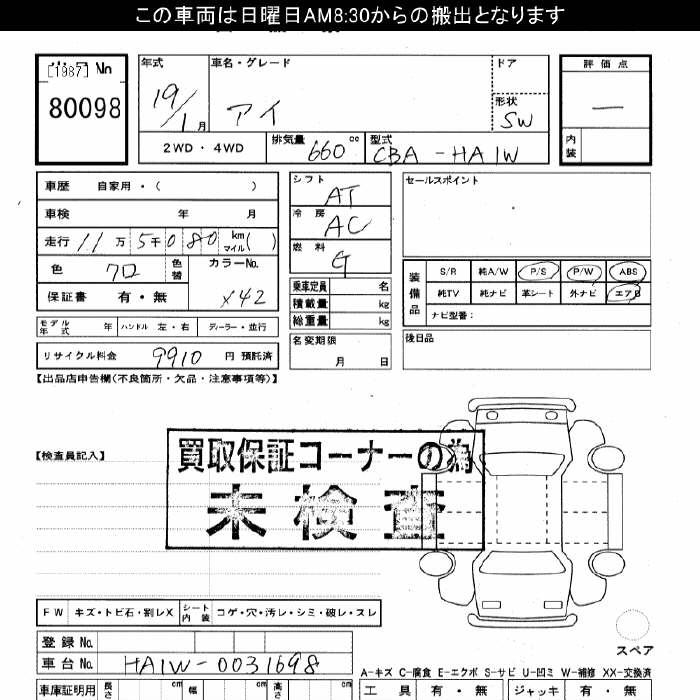 この車両は日曜日AM8:30からの搬出となります
[1987] No
80098
年式 車名・グレード ドア 評価点
19/1月 アイ 形状 SW —
2WD・4WD 排気量 660 cc 型式 CBA-HA1W 内装
車歴 自家用・( ) シフト AT セールスポイント
車検 年 月 冷房 AC
走行 11万5千080 km マイル( ) 燃料 G
色 クロ 色替 カラーNo. X42
保証書 有・無
乗車定員 名
積載量 kg
総重量 kg
装備品 S/R 純A/W P/S P/W ABS
純TV 純ナビ 革シート 外ナビ エアB
ナビ型番:
モデル年式 年 ハンドル 左・右 ディーラー・並行
名変期限 月 日
後日品
リサイクル料金 9910 円 預託済
【出品店申告欄(不良箇所・欠品・注意事項等)】
【検査員記入】
買取保証コーナーの為
未検査
FW キズ・トビ石・割レX シート内装 コゲ・穴・汚レ・シミ・破レ・スレ
登録No.
車台No. HA1W-0031698
スペア
A-キズ C-腐食 E-エクボ S-サビ U-凹ミ W-補修 XX-交換済
車庫証明用 長さ cm 幅 cm 高さ cm 工具 有・無 ジャッキ 有・無